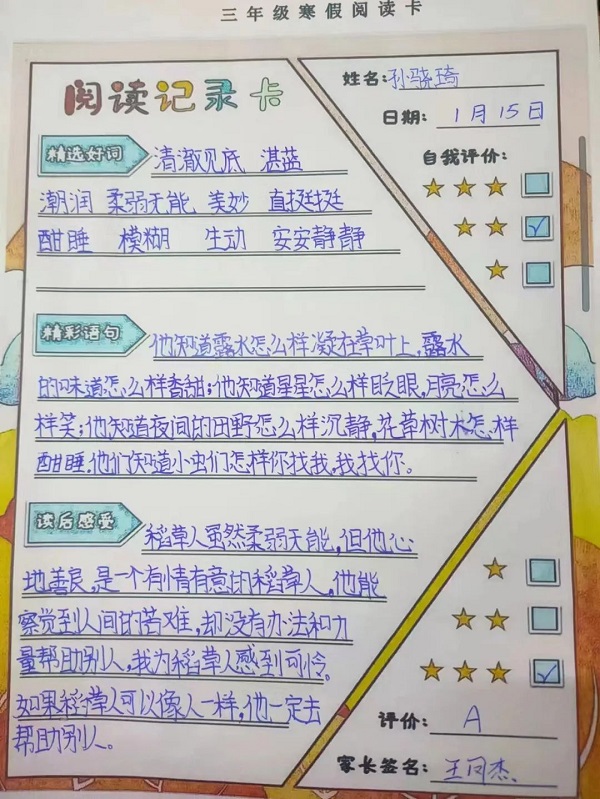 三年级寒假阅读卡
阅读记录卡
姓名:孙骁琦
日期: 1月15日
自我评价:
精选好词 清澈见底 湛蓝
潮润 柔弱无能 美妙 直挺挺
酣睡 模糊 生动 安安静静
精彩语句 他知道露水怎么样凝在草叶上,露水
的味道怎么样香甜;他知道星星怎么样眨眼,月亮怎么
样笑;他知道夜间的田野怎么样沉静,花草树木怎样
酣睡,他们知道小虫们怎样你找我,我找你。
读后感受 稻草人虽然柔弱无能,但他心
地善良,是一个有情有意的稻草人,他能
察觉到人间的苦难,却没有办法和力
量帮助别人,我为稻草人感到可怜。
如果稻草人可以像人一样,他一定去
帮助别人。
评价: A
家长签名: 王同杰